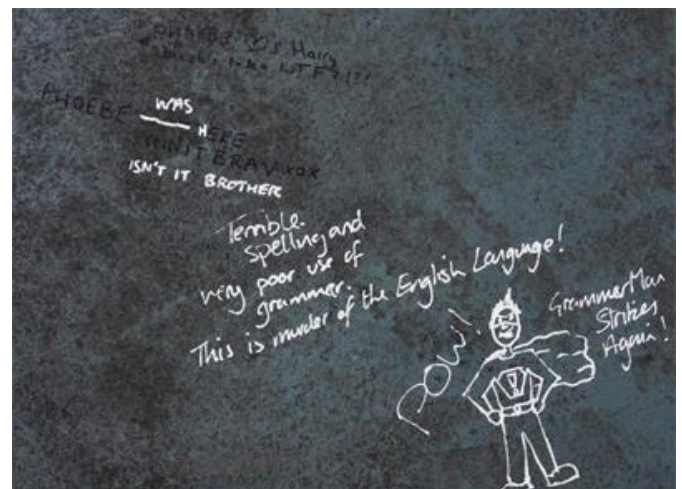 PHOEBE
WTF?!?!
WAS
PHOEBE HERE
INNIT BRAV xox
ISN'T IT BROTHER
Terrible.
spelling and
very poor use of
grammer.
This is murder of the English Language!
POW!
GrammerMan
Strikes
Again!